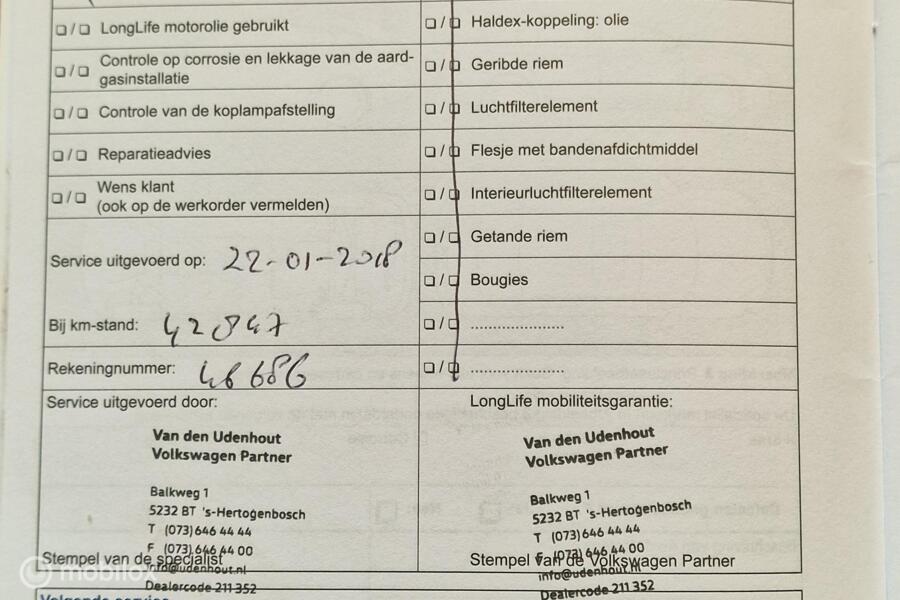 LongLife motorolie gebruikt
Controle op corrosie en lekkage van de aard-
gasinstallatie
Controle van de koplampafstelling
Reparatieadvies
Wens klant
(ook op de werkorder vermelden)
Service uitgevoerd op: 22-01-2018
Bij km-stand: 42847
Rekeningnummer: 46686
Service uitgevoerd door:
Van den Udenhout
Volkswagen Partner
Balkweg 1
5232 BT 's-Hertogenbosch
T (073) 646 44 44
F (073) 646 44 00
Stempel van de specialist
info@udenhout.nl
Dealercode 211 352
Haldex-koppeling: olie
Geribde riem
Luchtfilterelement
Flesje met bandenafdichtmiddel
Interieurluchtfilterelement
Getande riem
Bougies
.....................
.....................
LongLife mobiliteitsgarantie:
Van den Udenhout
Volkswagen Partner
Balkweg 1
5232 BT 's-Hertogenbosch
T (073) 646 44 44
F (073) 646 44 00
Stempel van de Volkswagen Partner
info@udenhout.nl
Dealercode 211 352
mobilox
Volgende service